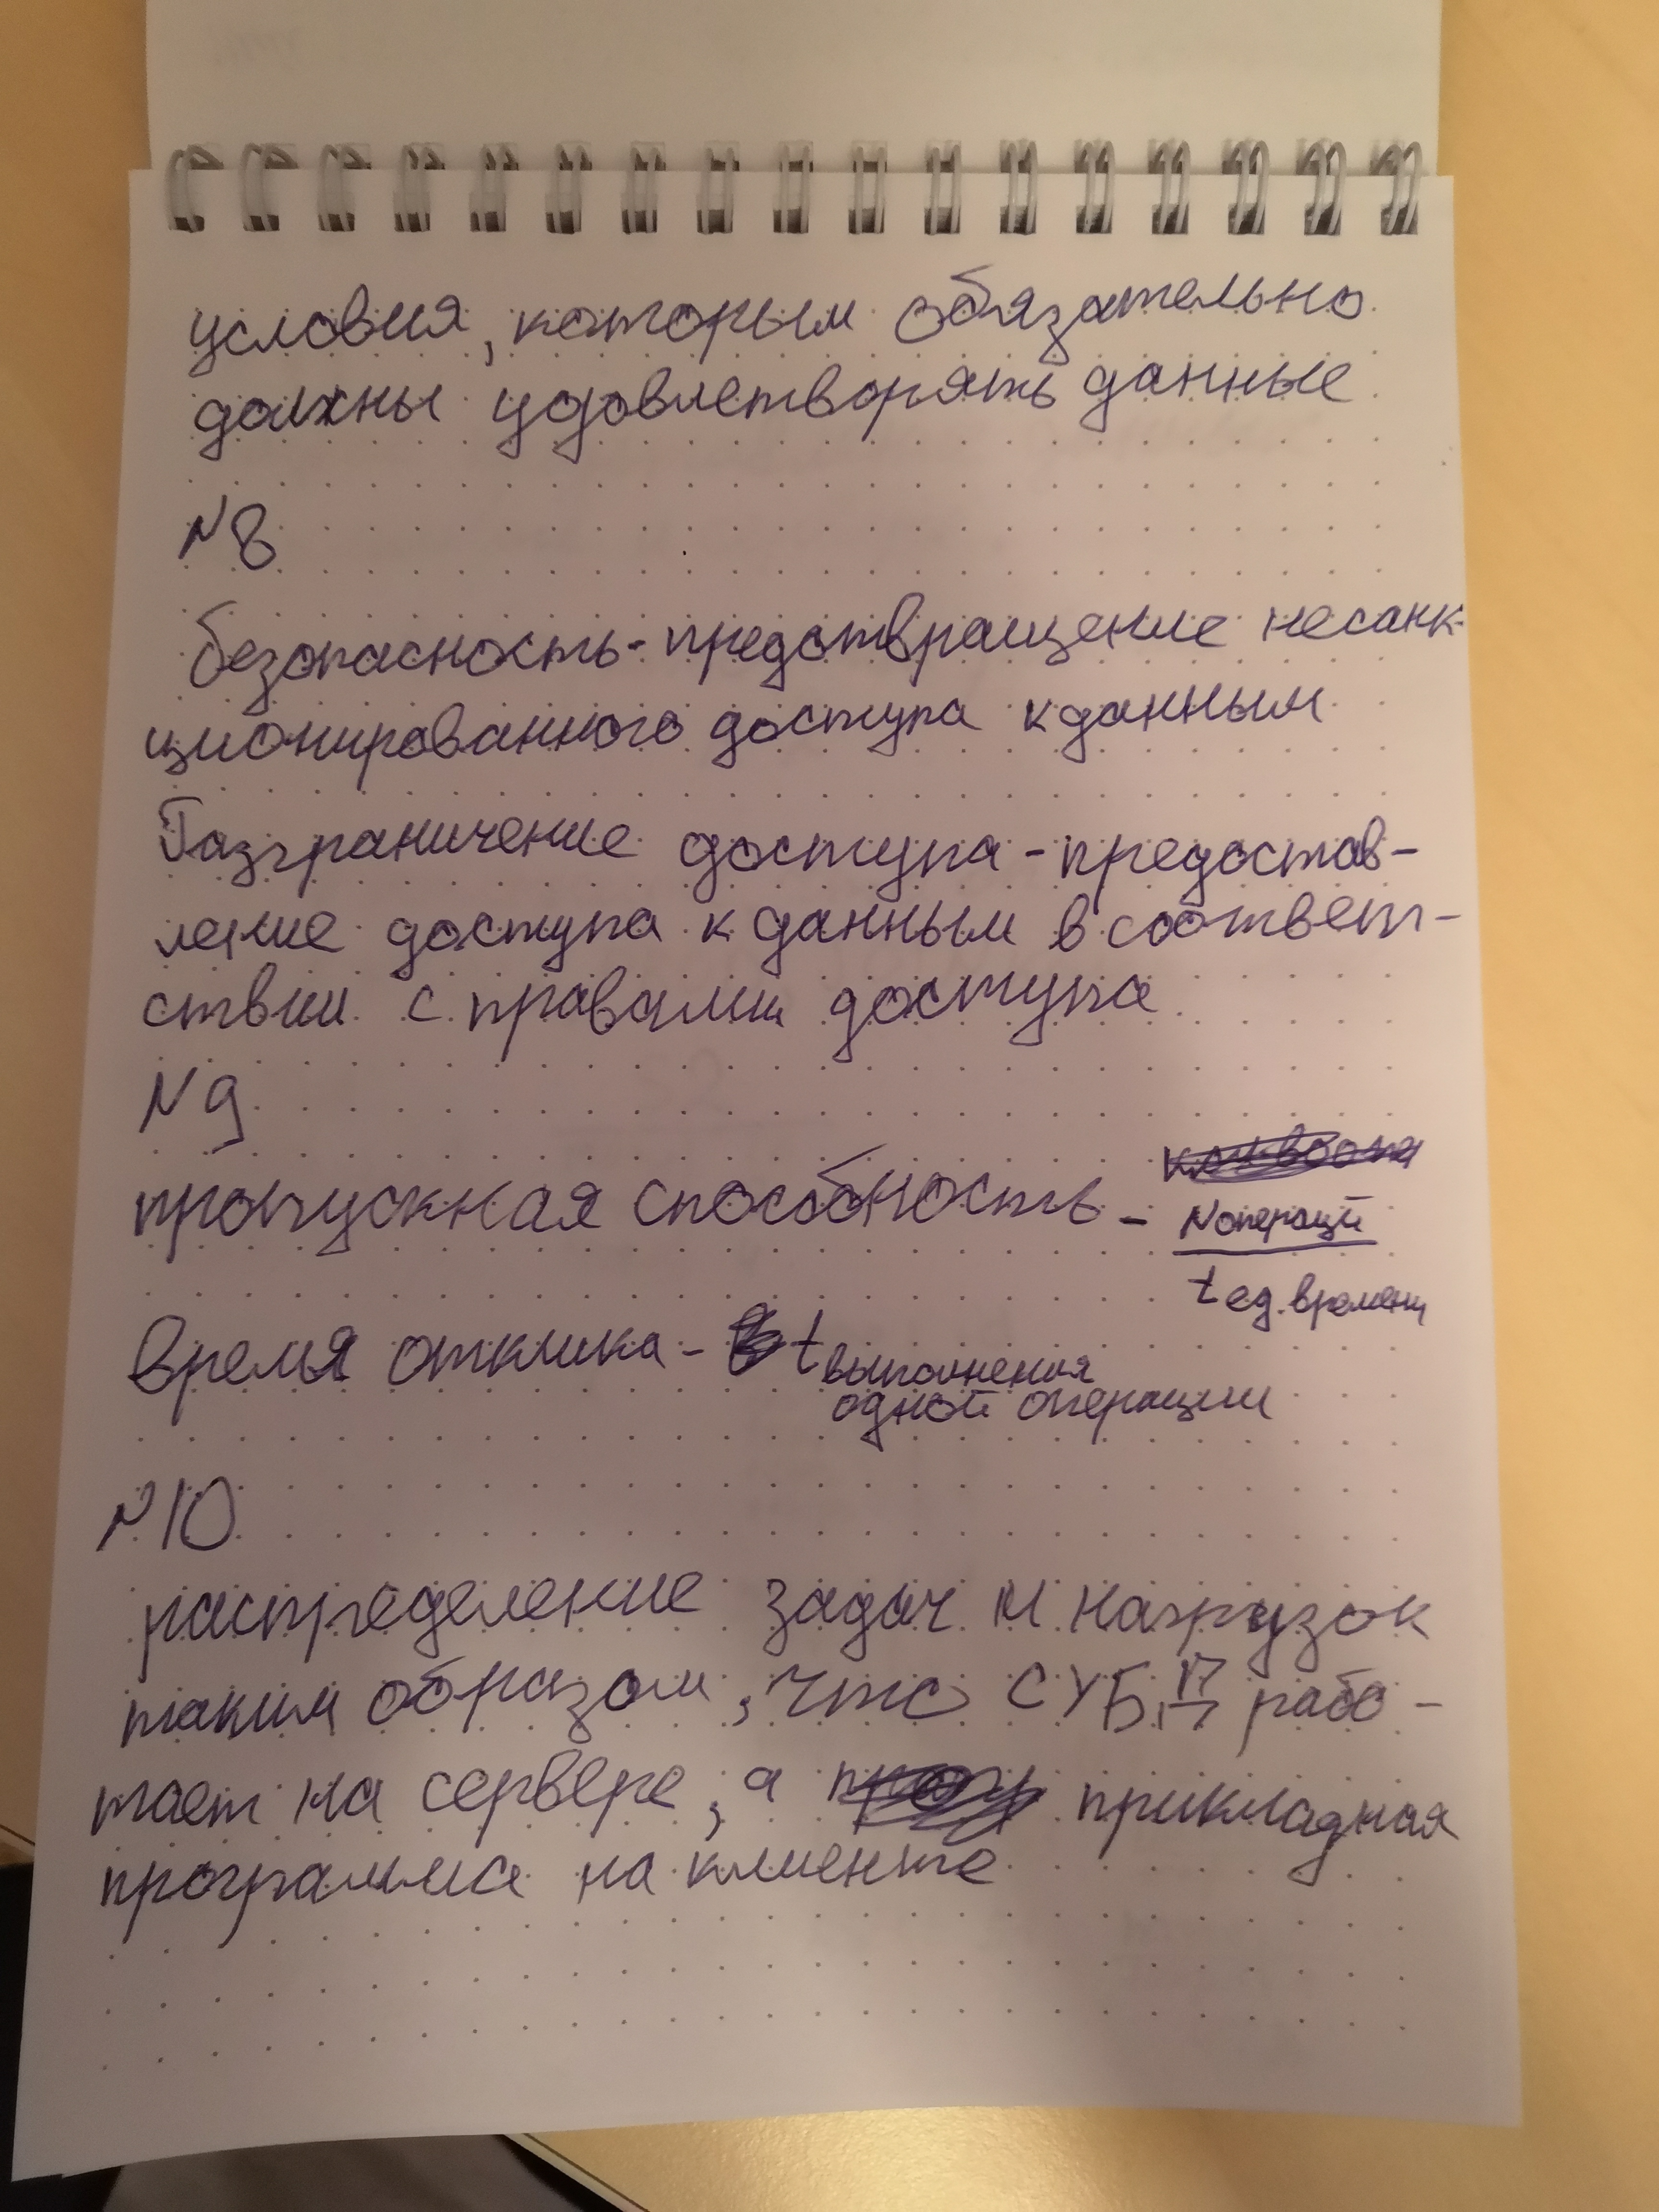 условия, которым обязательно
должны удовлетворять данные
N8
безопасность - предотвращение несанк-
ционированного доступа к данным
Разграничение доступа - предостав-
ление доступа к данным в соответ-
ствии с правами доступа
N9
пропускная способность - N операций
t ед. времени
Время отклика - t выполнения
одной операции
N10
распределение задач и нагрузок
таким образом, что СУБД рабо-
тает на сервере, а прикладная
программа на клиенте